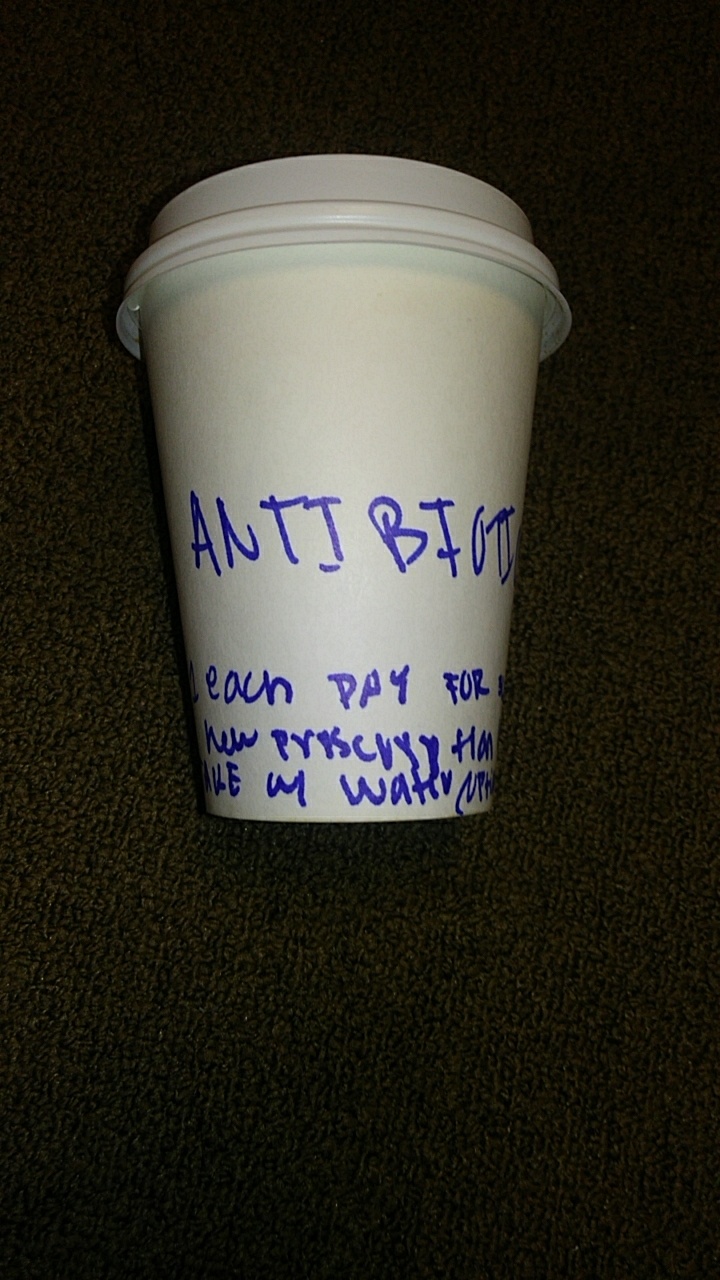 ANTIBIOTI
each DAY FOR
new prescription
w/ water